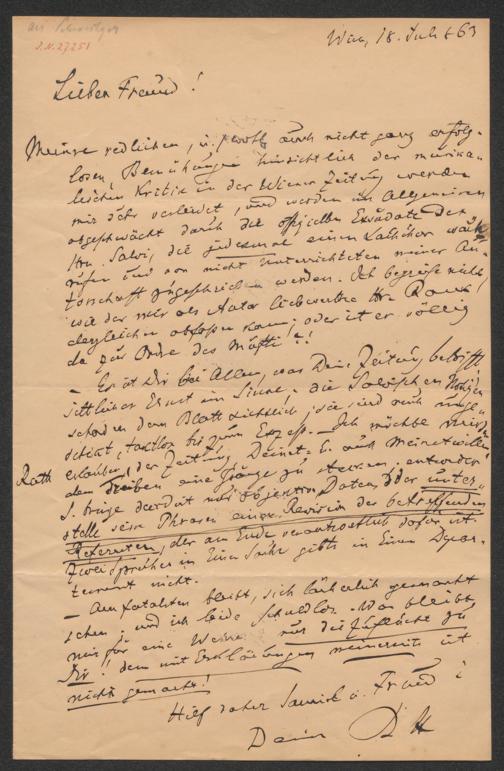 J.N. 27251
Wien, 18. Juli 63
Lieber Freund!
Meine redlichen, u. wohl auch nicht ganz erfolg-
losen, Bemühungen hinsichtlich der musika-
lischen Kritik in der Wiener Zeitung werden
mir sehr verleidet, und werden im Allgemeinen
abgeschwächt durch die offiziellen Exsudate des
Hrn. Salvi, die jedesmal einen
rufen und von nicht Unterrichteten meiner Au-
torschaft zugeschrieben werden. Ich begreife nicht,
wie der mir als Autor liebwerthe Hr.
dergleichen kann, oder ist er völlig
da zur Ordre des Mufti?!
— Es ist Dir bei Allem, was Deine Zeitung betrifft,
sittlicher Ernst im Sinne. Die Salvischen Notizen
schaden dem Blatt sichtlich; sie sind auch unge-
schickt, taktlos bis zum Exzeß. Ich möchte mir
erlauben, der Zeitung, Deinet- u. auch Meinetwillen
dem Treiben eine Gränze zu stecken; entweder
S. bringe nur objektive Daten, oder unter-
stelle seine Phrasen einer Revision des betreffenden
Referenten, der am Ende verantwortlich dafür ist.
Zwei Sprüche in Einer Sache gibts in Einem Depar-
tement nicht.
— Am fatalsten bleibt, sich lächerlich gemacht
sehen; und ich beide Schuldlos. Was bleibt
mir für eine Weise nur die Zuflucht zu
Dir! denn mit Erklärungen meinerseits ist
nichts gemacht!
Hilf daher Samid u. Freund!
Dein